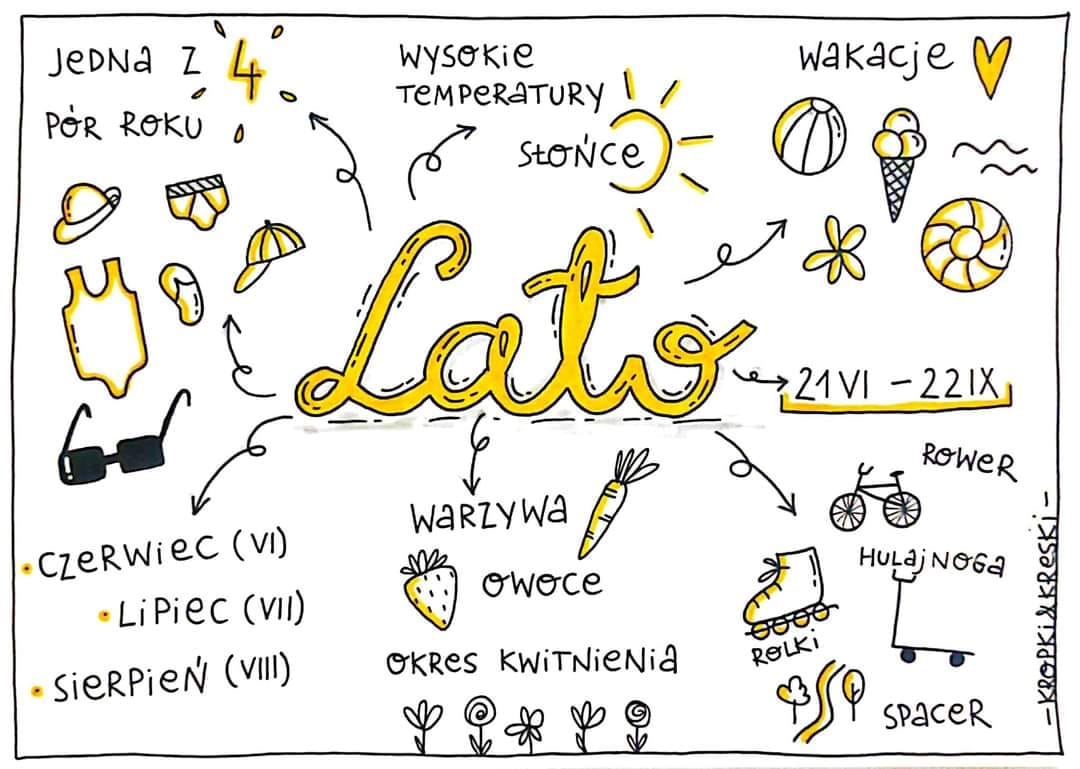 Jedna z 4
pór roku
Wysokie
temperatury
Słońce
Wakacje
Lato
21 VI – 22 IX
Czerwiec (VI)
Lipiec (VII)
Sierpień (VIII)
Warzywa
Owoce
Okres kwitnienia
Rower
Hulajnoga
Rolki
Spacer
-KROPKI&KRESKI-